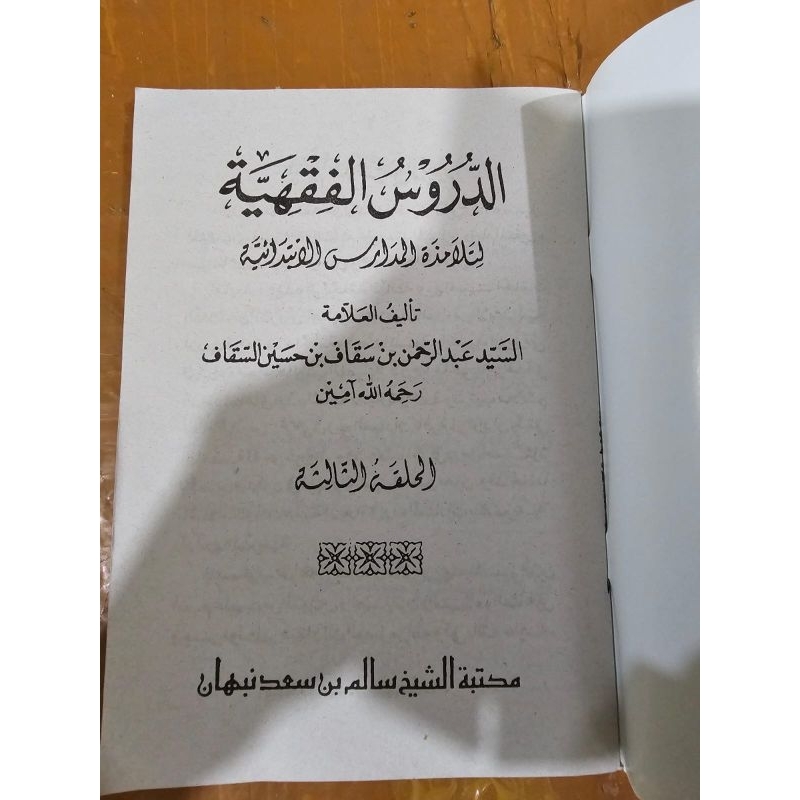 الدُّرُوْسُ الفِقْهِيَّة
لِتَلَامِذَة المَدَارِسِ الاِبْتِدَائِيَّة
تأليفُ العَلاَّمة
السَّيِّد عَبْدالرَّحْمٰن بن سَقَاف بن حسَين السَّقَاف
رَحِمَهُ اللّٰه آمِيْن
الحَلقة الثَّالِثَة
مكتبة الشيخ سالم بن سعد نبهان